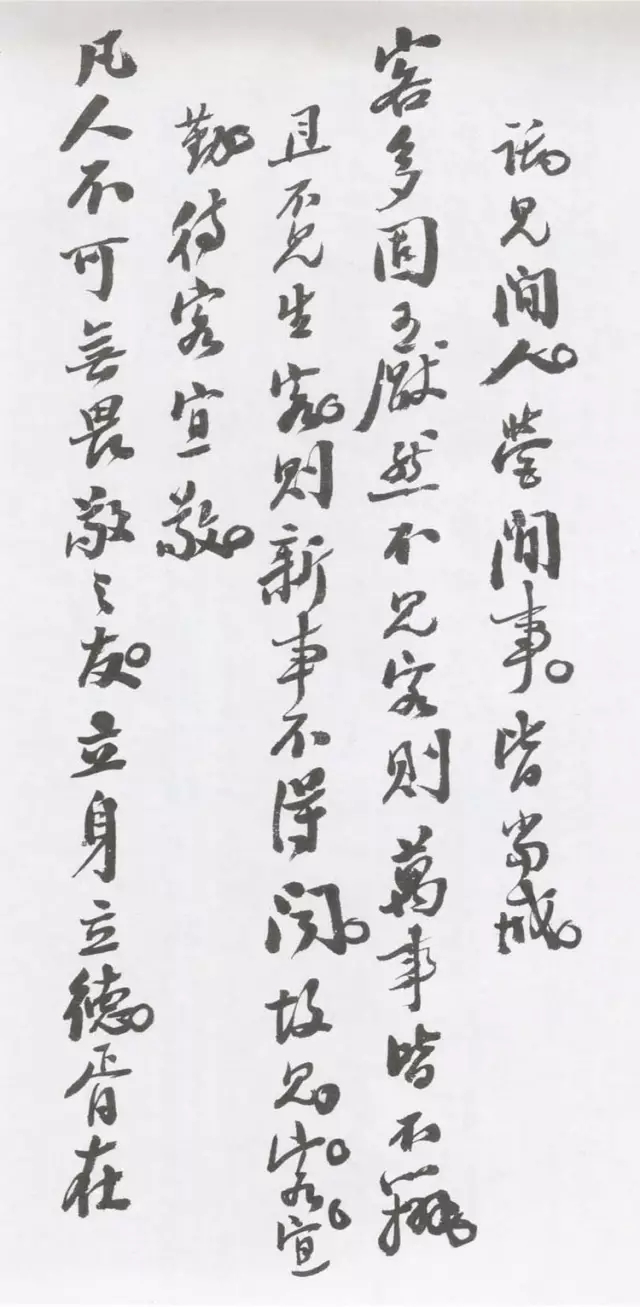 見閒人營閒事皆當
客多固厭然不見客則萬事皆不辦
且不見生客則新事不得聞故見客宜
勤待客宜敬
凡人不可無畏敬之友立身立德胥在